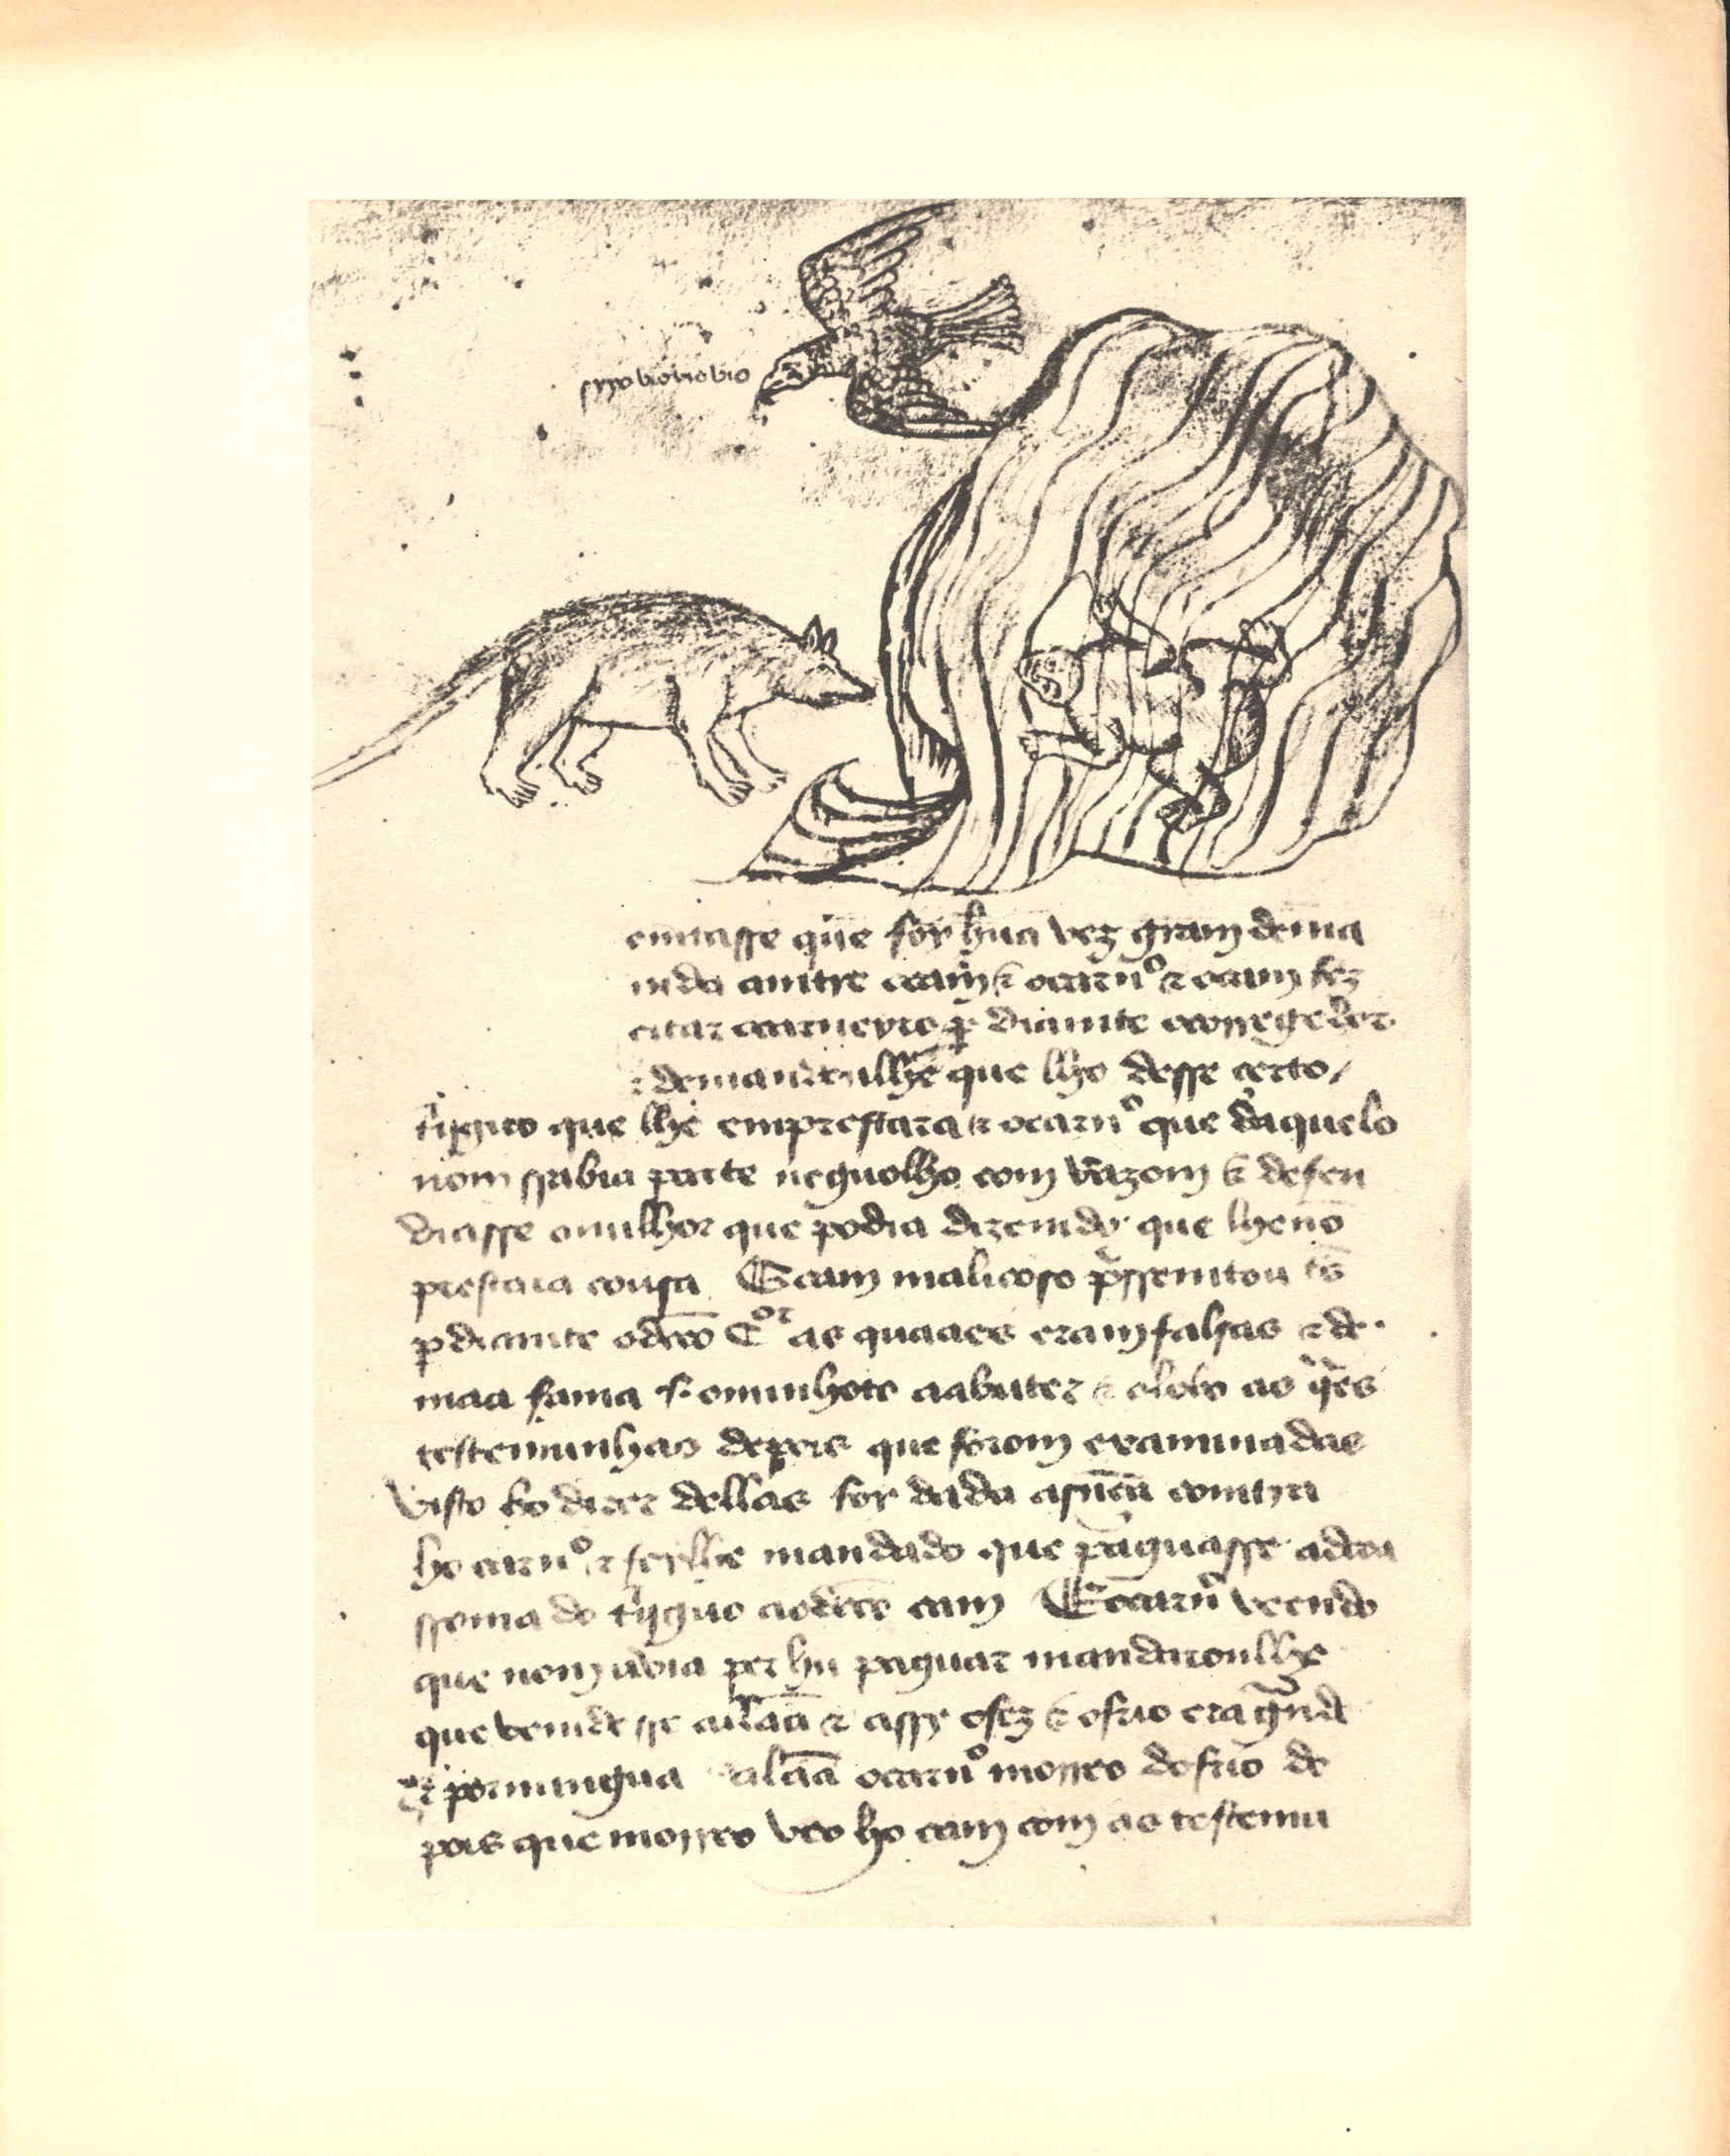 ssyo bio bio bio
emtasse que foy hũa vez gram dema
nda amtre ocam & ocarnº & ocam fez
citar ocarneyro per diamte ocorregedor
& demandoulhe que lho desse certo /
trijguo que lhe emprestara & ocarnº que daquelo
nom ssabia parte neguolho com razom & defen
diasse omilhor que podia dizemdo que lhe nõ
prestara cousa E ocam malicoso pressemtou ts
per diamte odcõ Cor as quaaes eram falsas & de
maa fama s. ominhoto aabuter & olobo as q̃es
testemunhas depois que forom examinadas
visto ho dizer dellas foy dada asñca comtra
ho carnº & foylhe mandado que paguasse adcta
ssoma do trijguo aodcõ cam E ocarnº veendo
que nom avia per hu paguar mandaronlhe
que vemdesse alãa & assy ofez & ofrio era grãde
& por mingua lãa ocarnº morreo de frio de
pois que morreo veo ho cam com as testemu